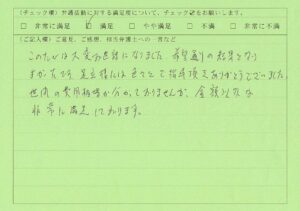 (チェック欄) 弁護活動に対する満足度について、チェック☑をお願いします。
□ 非常に満足 ☑ 満足 □ やや満足 □ 不満 □ 非常に不満
(ご記入欄) ご意見、ご感想、担当弁護士への一言など
このたびは大変お世話になりました。希望通りの結果となり
ましたのも、足立様には色々とご指導頂きありがとうございました。
世間の費用相場が分かっておりませんが、金額としても
非常に満足しております。